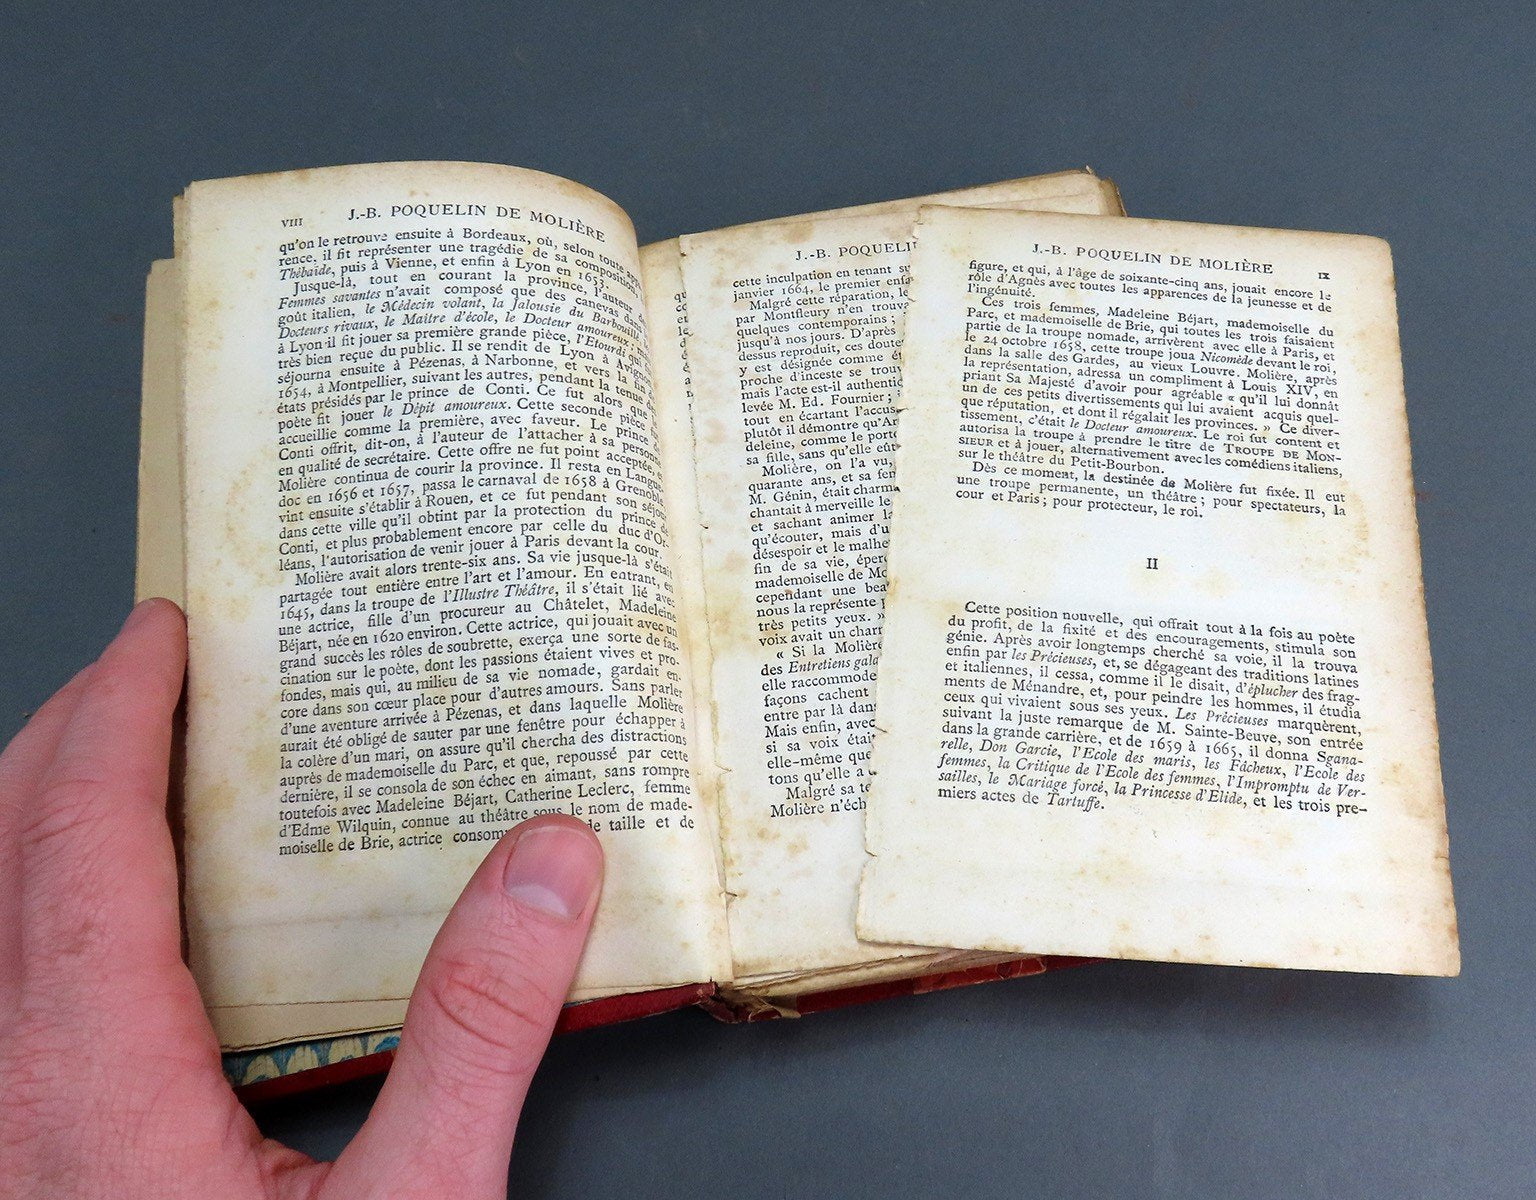 VIII J.-B. POQUELIN DE MOLIÈRE
qu'on le retrouve ensuite à Bordeaux, où, selon toute
rence, il fit représenter une tragédie de sa composition,
Thébaïde, puis à Vienne, et enfin à Lyon en 1653.
Jusque-là, tout en courant la province, l'auteur
Femmes savantes n'avait composé que des canevas dans
goût italien, le Médecin volant, la Jalousie du Barbouillé,
Docteurs rivaux, le Maître d'école, le Docteur amoureux;
à Lyon il fit jouer sa première grande pièce, l'Etourdi
très bien reçue du public. Il se rendit de Lyon à
séjourna ensuite à Pézenas, à Narbonne, et vers la fin
1654, à Montpellier, suivant les autres, pendant la tenue
états présidés par le prince de Conti. Ce fut alors que
poète fit jouer le Dépit amoureux. Cette seconde pièce fut
accueillie comme la première, avec faveur. Le Prince de
Conti offrit, dit-on, à l'auteur de l'attacher à sa personne
en qualité de secrétaire. Cette offre ne fut point acceptée,
Molière continua de courir la province. Il resta en Langue-
doc en 1656 et 1657, passa le carnaval de 1658 à Grenoble,
vint ensuite s'établir à Rouen, et ce fut pendant son séjour
dans cette ville qu'il obtint par la protection du prince de
Conti, et plus probablement encore par celle du duc d'Or-
léans, l'autorisation de venir jouer à Paris devant la cour.
Molière avait alors trente-six ans. Sa vie jusque-là s'était
partagée tout entière entre l'art et l'amour. En entrant, en
1645, dans la troupe de l'Illustre Théâtre, il s'était lié avec
une actrice, fille d'un procureur au Châtelet, Madeleine
Béjart, née en 1620 environ. Cette actrice, qui jouait avec un
grand succès les rôles de soubrette, exerça une sorte de fas-
cination sur le poète, dont les passions étaient vives et pro-
fondes, mais qui, au milieu de sa vie nomade, gardait en-
core dans son cœur place pour d'autres amours. Sans parler
d'une aventure arrivée à Pézenas, et dans laquelle Molière
aurait été obligé de sauter par une fenêtre pour échapper à
la colère d'un mari, on assure qu'il chercha des distractions
auprès de mademoiselle du Parc, et que, repoussé par cette
dernière, il se consola de son échec en aimant, sans rompre
toutefois avec Madeleine Béjart, Catherine Leclerc, femme
d'Edme Wilquin, connue au théâtre sous le nom de made-
moiselle de Brie, actrice de taille et de
J.-B. POQUELIN
cette inculpation en tenant
janvier 1664, le premier
Malgré cette réparation, le
par Montfleury n'en trouva
quelques contemporains;
jusqu'à nos jours. D'après
dessus reproduit, ces
y est désignée comme
proche d'inceste se
mais l'acte est-il
levée M. Ed. Fournier;
tout en écartant
plutôt il démontre
deleine, comme le
sa fille, sans qu'elle
Molière, on l'a vu,
quarante ans, et sa
M. Génin, était
chantait à merveille
et sachant animer
qu'écouter, mais
désespoir et le
fin de sa vie,
mademoiselle de
cependant une
nous la représente
très petits yeux. »
voix avait un
« Si la Molière
des Entretiens
elle raccommode
façons cachent
entre par là dans
Mais enfin, avec
si sa voix était
elle-même que
tons qu'elle a
Malgré sa
Molière
J.-B. POQUELIN DE MOLIÈRE IX
figure, et qui, à l'âge de soixante-cinq ans, jouait encore le
rôle d'Agnès avec toutes les apparences de la jeunesse et de
l'ingénuité.
Ces trois femmes, Madeleine Béjart, mademoiselle du
Parc, et mademoiselle de Brie, qui toutes les trois faisaient
partie de la troupe nomade, arrivèrent avec elle à Paris, et
le 24 octobre 1658, cette troupe joua Nicomède devant le roi,
dans la salle des Gardes, au vieux Louvre. Molière, après
la représentation, adressa un compliment à Louis XIV, en
priant Sa Majesté d'avoir pour agréable « qu'il lui donnât
un de ces petits divertissements qui lui avaient acquis quel-
que réputation, et dont il régalait les provinces. » Ce diver-
tissement, c'était le Docteur amoureux. Le roi fut content et
autorisa la troupe à prendre le titre de TROUPE DE MON-
SIEUR et à jouer, alternativement avec les comédiens italiens,
sur le théâtre du Petit-Bourbon.
Dès ce moment, la destinée de Molière fut fixée. Il eut
une troupe permanente, un théâtre; pour spectateurs, la
cour et Paris; pour protecteur, le roi.
II
Cette position nouvelle, qui offrait tout à la fois au poète
du profit, de la fixité et des encouragements, stimula son
génie. Après avoir longtemps cherché sa voie, il la trouva
enfin par les Précieuses, et, se dégageant des traditions latines
et italiennes, il cessa, comme il le disait, d'éplucher des frag-
ments de Ménandre, et, pour peindre les hommes, il étudia
ceux qui vivaient sous ses yeux. Les Précieuses marquèrent,
suivant la juste remarque de M. Sainte-Beuve, son entrée
dans la grande carrière, et de 1659 à 1665, il donna Sgana-
relle, Don Garcie, l'Ecole des maris, les Fâcheux, l'Ecole des
femmes, la Critique de l'Ecole des femmes, l'Impromptu de Ver-
sailles, le Mariage forcé, la Princesse d'Elide, et les trois pre-
miers actes de Tartuffe.